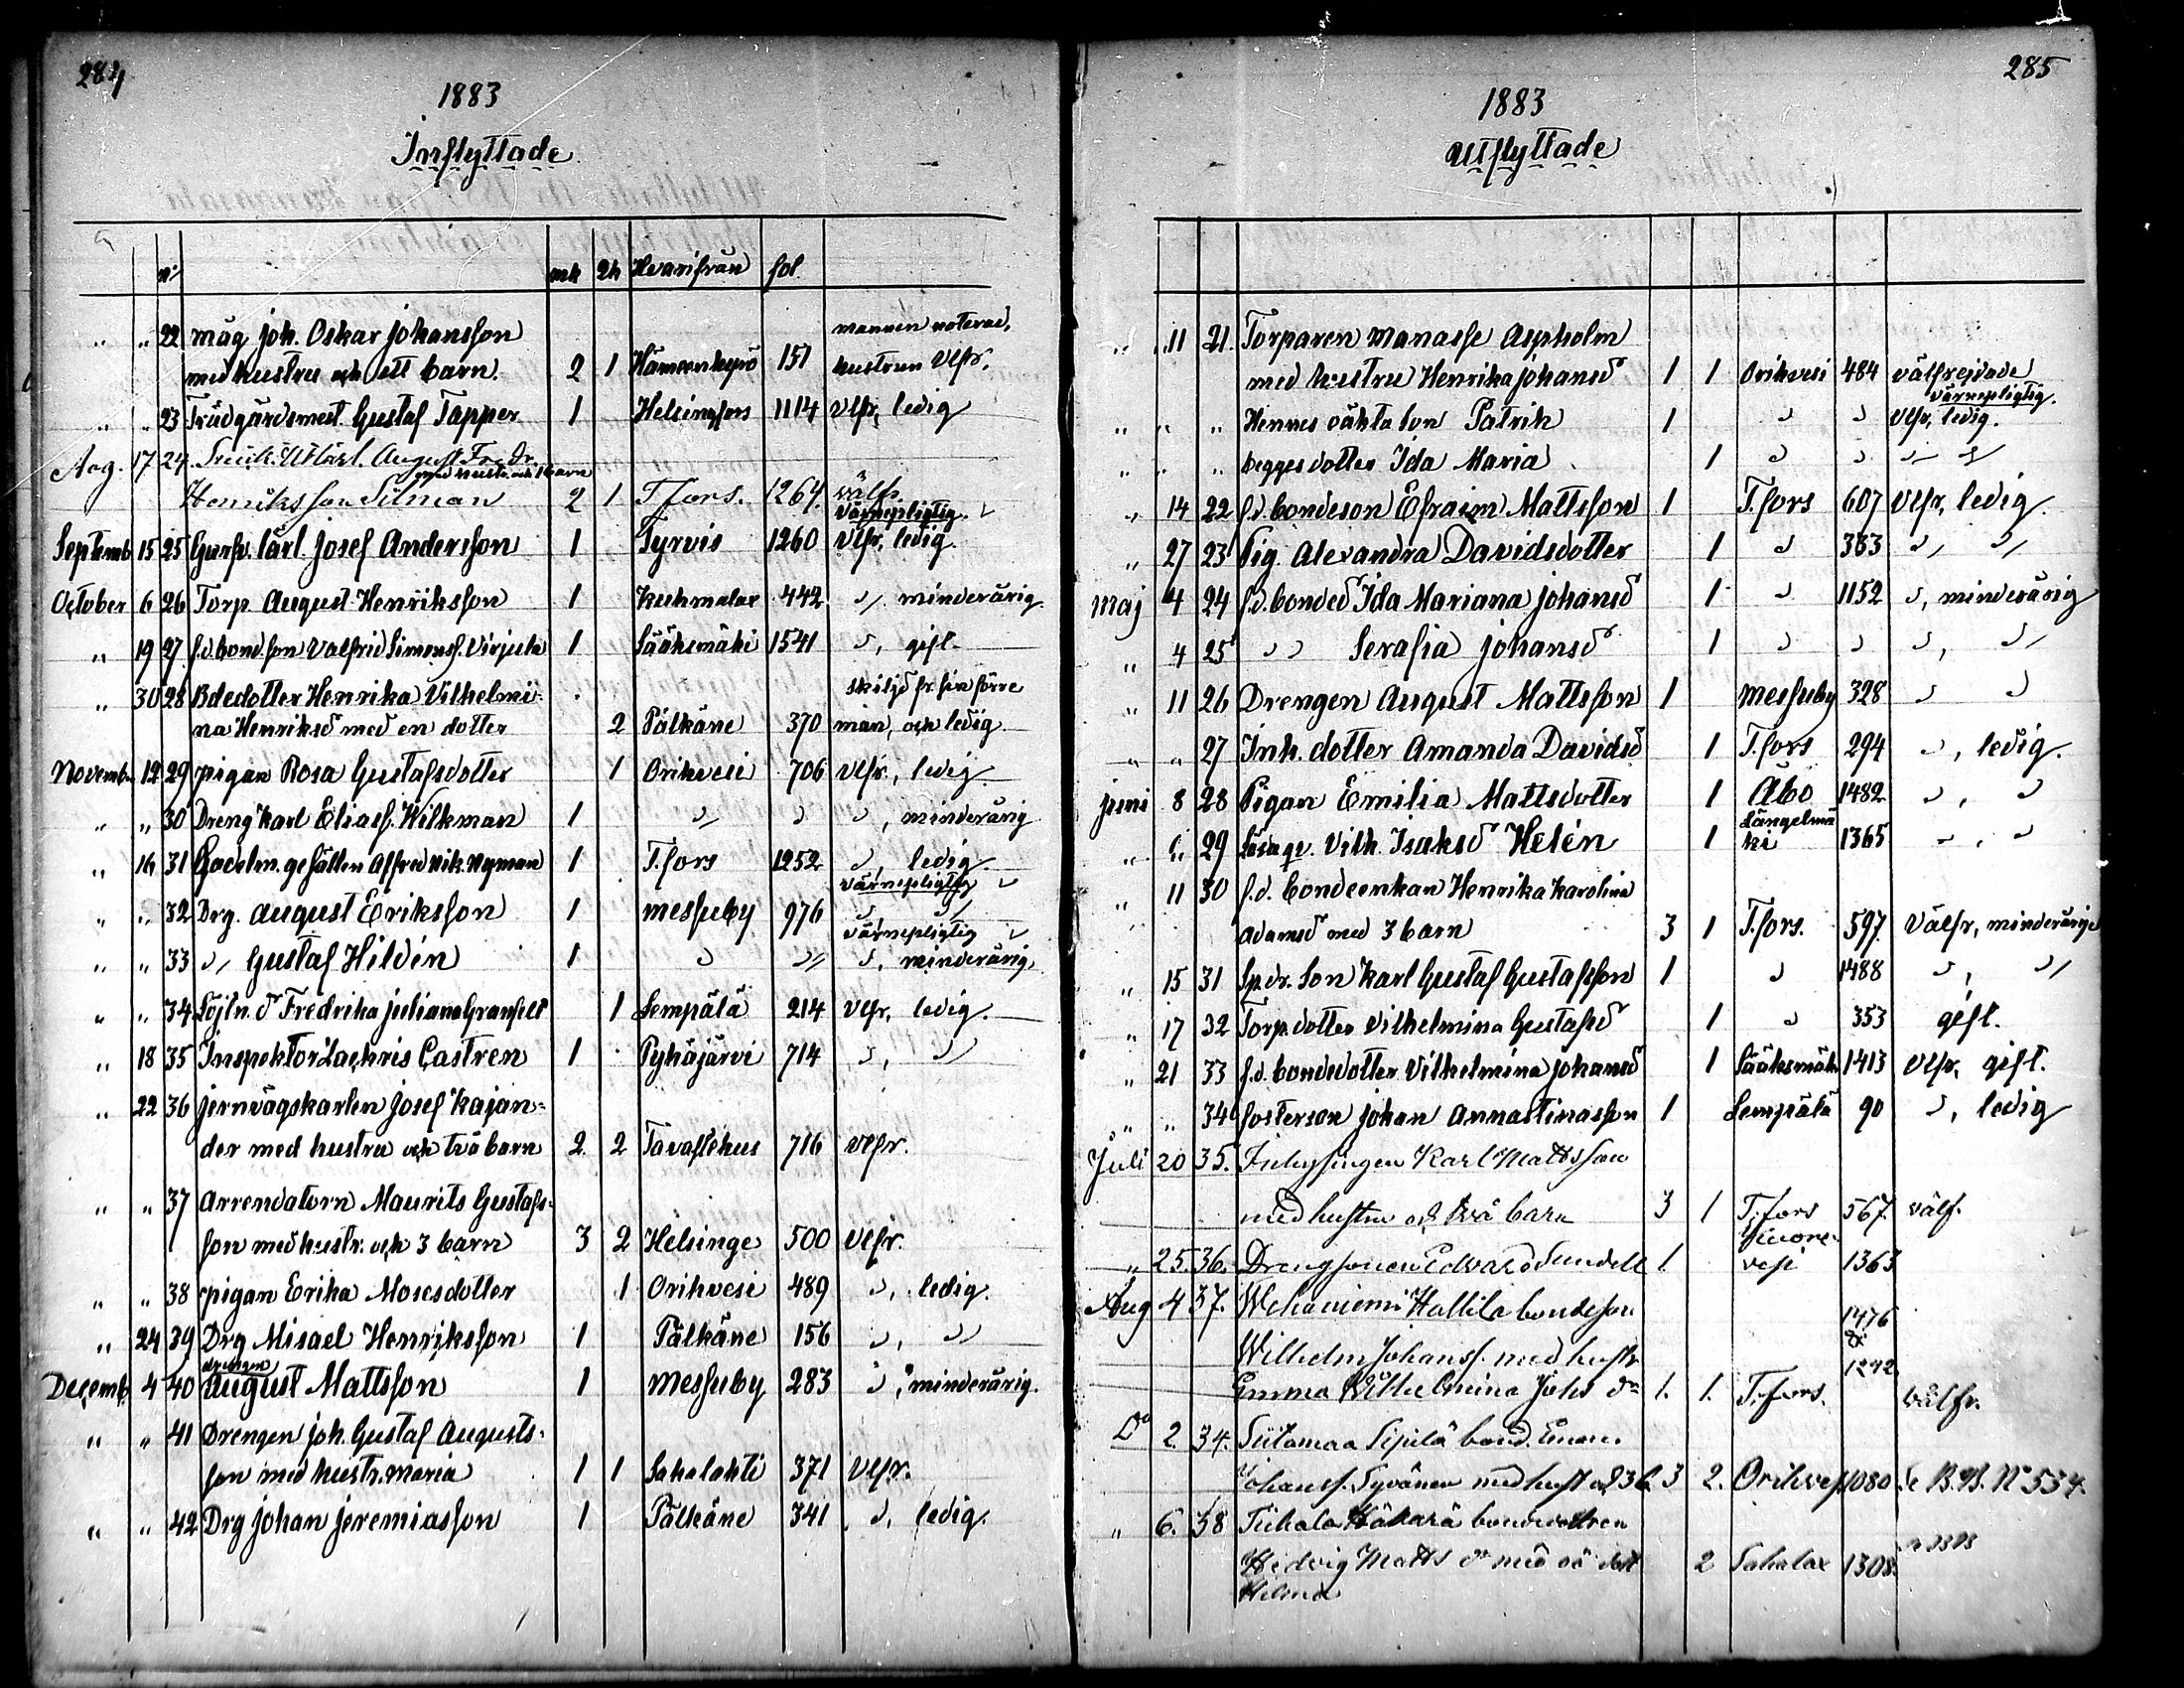 284
1883
Inflyttade
No mk qk Hvarifrån fol.
" " 22 måg joh. Oskar johansson mannen noterad,
med hustru och ett barn. 2 1 Hämeenkyrö 151 hustrun vlfr.
" " 23 Trädgårdsmest. Gustaf Tapper 1 Helsingfors 1114 vlfr, ledig
Aug. 17 24. August Fredr.
med hustr. och 1 barn
Henriksson Silman 2 1 T.fors. 1264. välfr.
värnepligtig
Septemb 15 25 Garfv. lärl. josef Andersson 1 Tyrvis 1260 vlfr, ledig.
October 6 26 Torp. August Henriksson 1 Kuhmalax 442 " minderårig
" 19 27 f.d. bond. son Valfrid Simonss. Virjula 1 Sääksmäki 1541 ", gift.
" 30 28 Bdedotter Henrika Vilhelmi- skiljd fr. sin förre
na Henriksd med en dotter 2 Pälkäne 370 man, och ledig
Novemb. 12 29 pigan Rosa Gustafsdotter 1 Orihvesi 706 vlfr., ledig
" " 30 Dreng Karl Eliass. Wilkman 1 " " ", minderårig
" 16 31 gesällen Alfred Nik. Nyman 1 T.fors 1252 ", ledig
värnepligtig
" " 32 Drg. August Eriksson 1 messuby 976 " "
värnepligtig
" " 33 " Gustaf Hildén 1 " " ", minderårig,
" " 34 Löjtn. dr Fredrika juliana Granfelt 1 Lempälä 214 vlfr, ledig.
" 18 35 Inspektor Zachris Castren 1 Pyhäjärvi 714 ", "
" 22 36 jernvägskarlen josef Kajan-
der med hustru och två barn 2 2 Tavastehus 716 vlfr.
" " 37 Arrendatorn Maurits Gustafs-
son med hustr. och 3 barn 3 2 Helsinge 500 vlfr.
" " 38 pigan Erika Mosesdotter 1 Orihvesi 489 ", ledig.
" 24 39 Drg Misael Henriksson 1 Pälkäne 156 ", "
drengen
Decemb. 4 40 August Mattsson 1 messuby 283 ", minderårig.
" " 41 Drengen joh. Gustaf Augusts-
son med hustr. maria 1 1 Sahalahti 371 vlfr.
" " 42 Drg johan jeremiasson 1 Pälkäne 341 ", ledig.
285
1883
Utflyttade
" 11 21. Torparen Manasse Aspholm
med hustru Henrika johansd 1 1 Orihvesi 484 välfrejdade
värnepligtig.
" " " Hennes oäkta son Patrik 1 " " vlfr, ledig.
" " " begges dotter Ida Maria 1 " " " "
" 14 22 f.d. bondeson Efraim Mattsson 1 T.fors 607 vlfr, ledig.
" 27 23 Pig. Alexandra Davidsdotter 1 " 363 " "
Maj 4 24 f.d. bonded Ida Mariana johansd 1 " 1152 ", minderårig
" 4 25 " " Serafia johansd 1 " " ", "
" 11 26 Drengen August Mattsson 1 messuby 328 " "
" " 27 Inh. dotter Amanda Davidsd 1 T.fors 294 ", ledig.
juni 8 28 Pigan Emilia Mattsdotter 1 Åbo 1482 ", "
Längelmä
" " 29 Lösaqv. Vilh. Isaksd Helén 1 ki 1365 ", "
" 11 30 f.d. bondeenkan Henrika Karolina
Adamsd med 3 barn 3 1 T.fors. 597. Välfr, minderårige
" 15 31 Spdr. son Karl Gustaf Gustafsson 1 " 1488 ", "
" 17 32 Torp. dotter Vilhelmina Gustafsd 1 " 353 gift.
" 21 33 f.d. bondedotter Vilhelmina johansd 1 Sääksmäki 1413 vlfr, gift.
" " 34 fosterson johan Annastinasson 1 Lempälä 90 ", ledig
Juli 20 35. Inhysingen Karl Mattsson
med hustru och två barn 3 1 T.fors 567. välf.
Kuore-
" 25. 36. Drengsonen Edvard Sundell 1. vesi 1363
Aug 4 37. Wehaniemi Hallila bondeson 1476
Wilhelm Johanss. med hustr & 1272
Emma Wilhelmina Johs dr 1. 1. T.fors. välfr.
Do 2. 34. Siitamaa Sipilä bond. Eman.
Johanss. Syvänen med hust och 3 b. 3 2. Orihvesi 1080 Se B.B. No 534.
" 6. 38 Tiihala bondedottren
Hedvig Matts dr med oä dott 2 Sahalax 1308.
Hilma